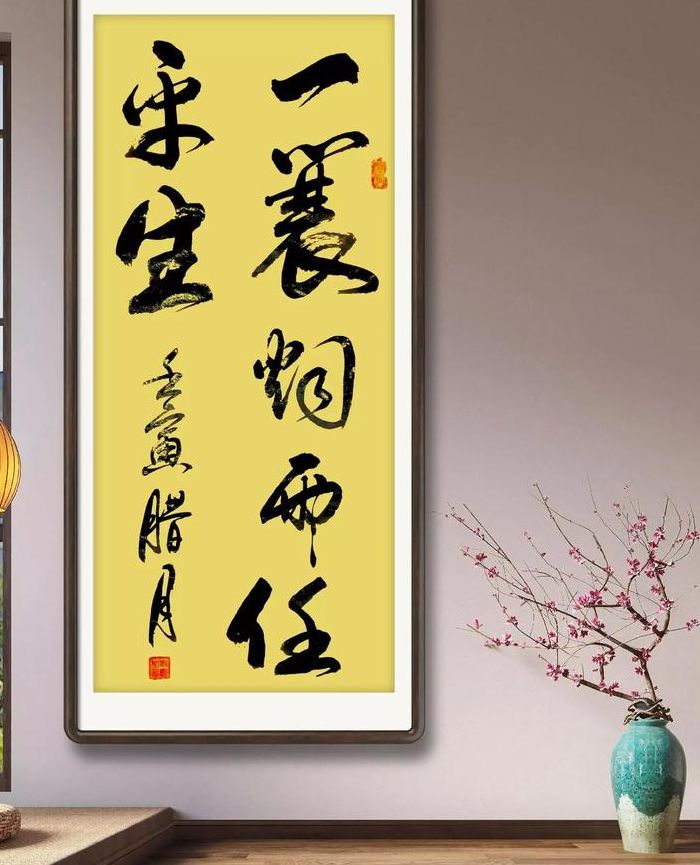 一蓑烟雨任
平生 壬寅腊月